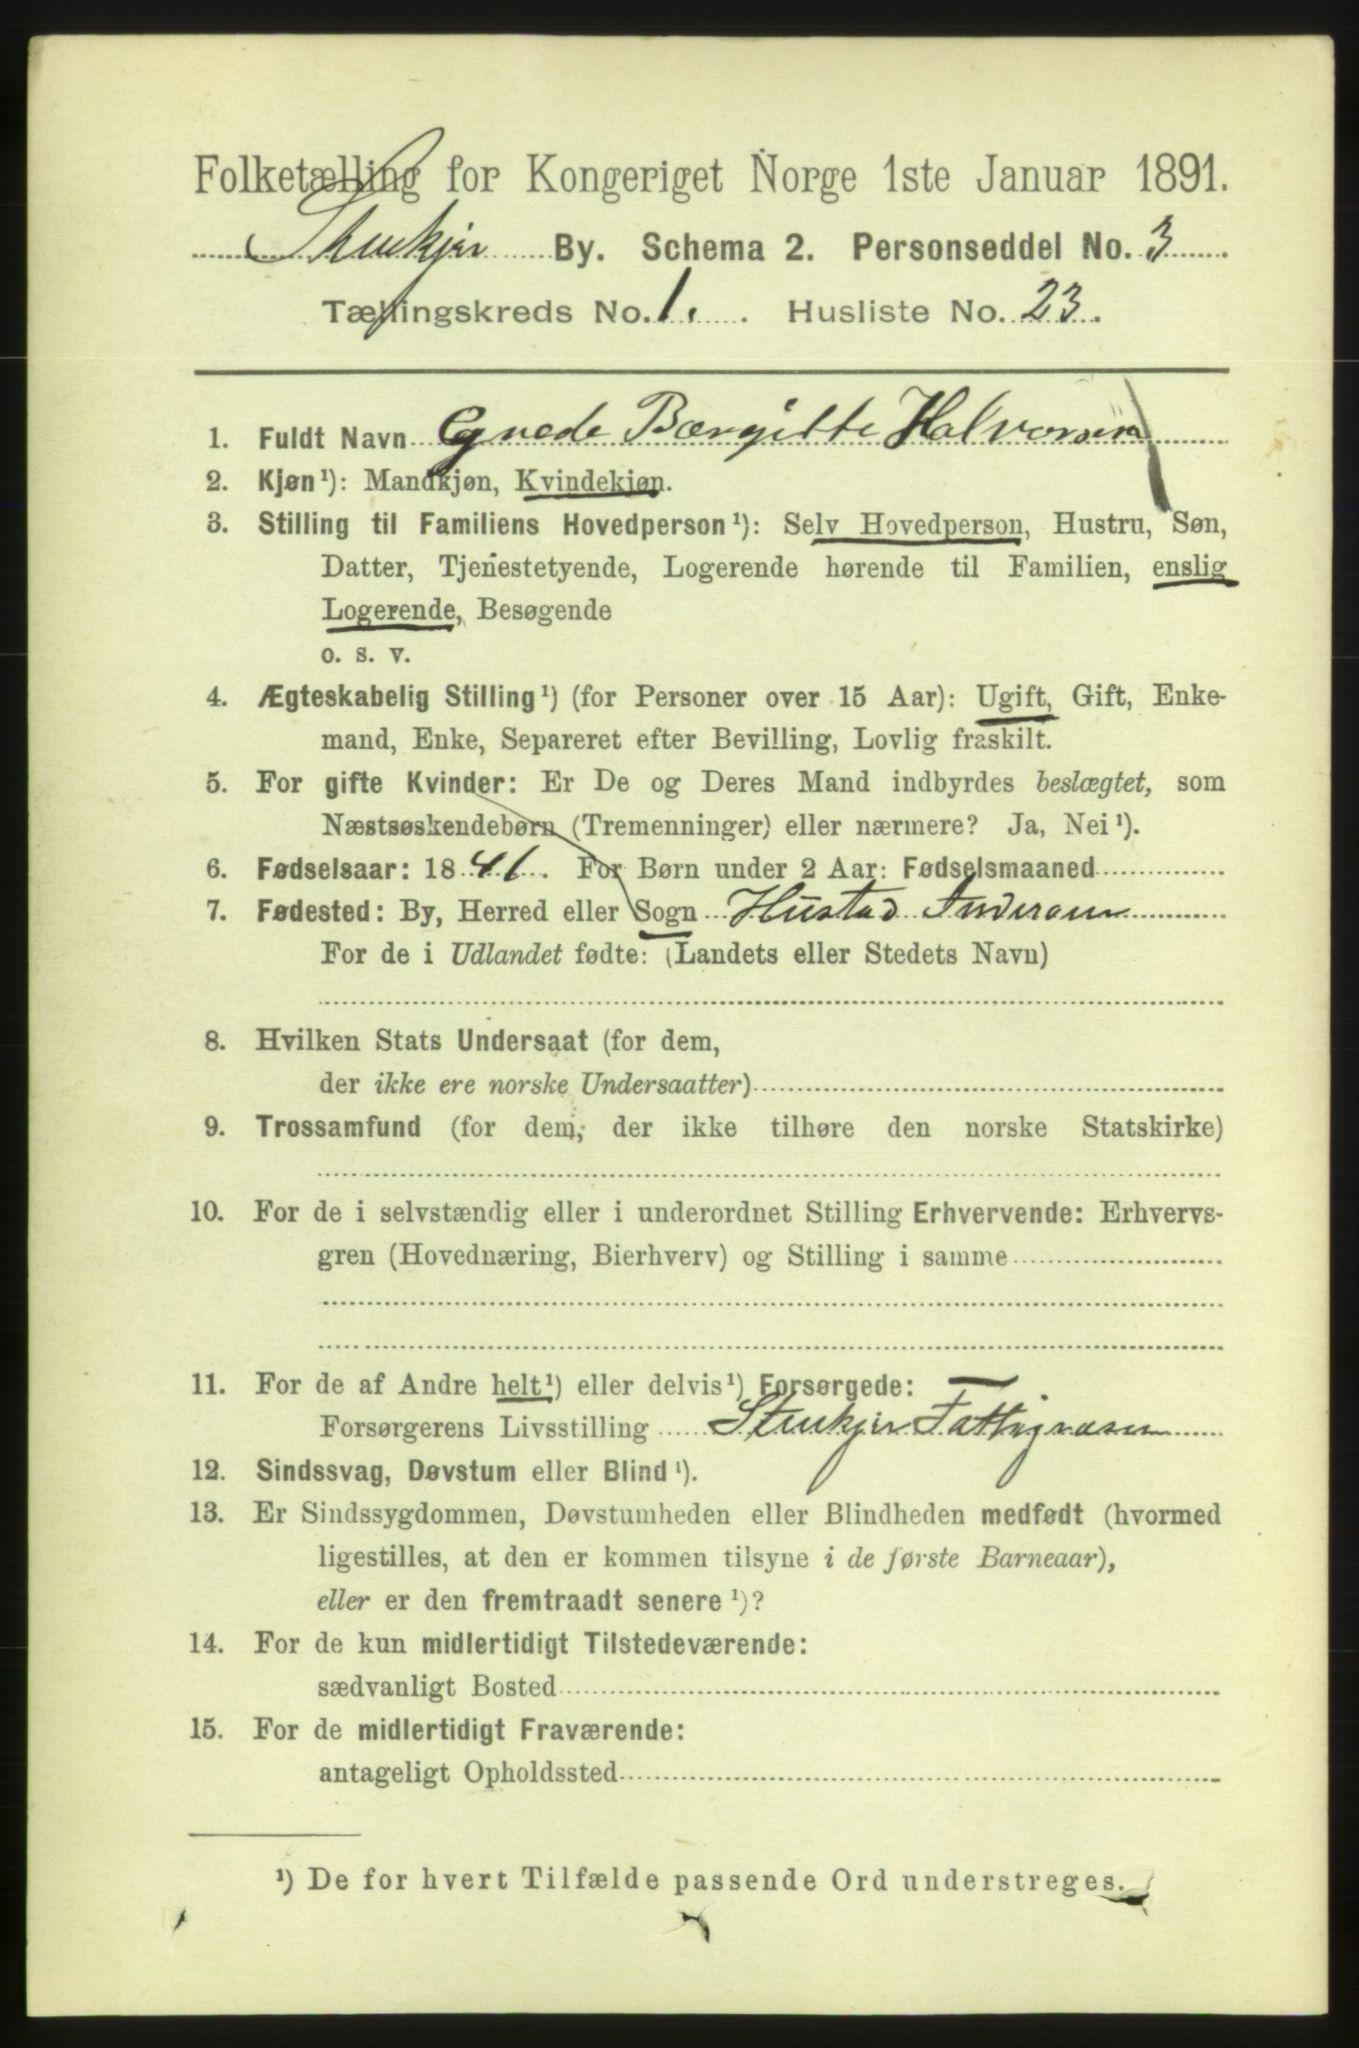 Folketælling for Kongeriget Norge 1ste Januar 1891.
Stenkjer By. Schema 2. Personseddel No. 3
Tællingskreds No. 1. Husliste No. 23.
1. Fuldt Navn Gnede Bærgitte Halvorsen
2. Kjøn¹): Mandkjøn, Kvindekjøn.
3. Stilling til Familiens Hovedperson¹): Selv Hovedperson, Hustru, Søn,
Datter, Tjenestetyende, Logerende hørende til Familien, enslig
Logerende, Besøgende
o. s. v.
4. Ægteskabelig Stilling¹) (for Personer over 15 Aar): Ugift, Gift, Enke-
mand, Enke, Separeret efter Bevilling, Lovlig fraskilt.
5. For gifte Kvinder: Er De og Deres Mand indbyrdes beslægtet, som
Næstsøskendebørn (Tremenninger) eller nærmere? Ja, Nei¹).
6. Fødselsaar: 1841. For Børn under 2 Aar: Fødselsmaaned
7. Fødested: By, Herred eller Sogn Hustad Inderøen
For de i Udlandet fødte: (Landets eller Stedets Navn)
8. Hvilken Stats Undersaat (for dem,
der ikke ere norske Undersaatter)
9. Trossamfund (for dem, der ikke tilhøre den norske Statskirke)
10. For de i selvstændig eller i underordnet Stilling Erhvervende: Erhvervs-
gren (Hovednæring, Bierhverv) og Stilling i samme
11. For de af Andre helt¹) eller delvis¹) Forsørgede:
Forsørgerens Livsstilling Stenkjer Fattigvæsen
12. Sindssvag, Døvstum eller Blind¹).
13. Er Sindssygdommen, Døvstumheden eller Blindheden medfødt (hvormed
ligestilles, at den er kommen tilsyne i de første Barneaar),
eller er den fremtraadt senere¹)?
14. For de kun midlertidigt Tilstedeværende:
sædvanligt Bosted
15. For de midlertidigt Fraværende:
antageligt Opholdssted
¹) De for hvert Tilfælde passende Ord understreges.